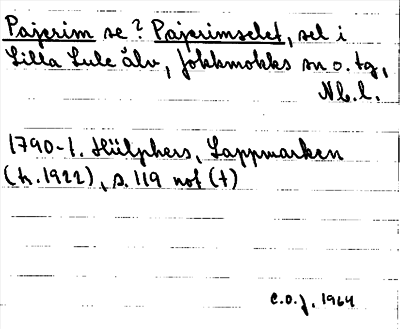 Pajerim se? Pajerimselet, sel i
Lilla Lule älv, Jokkmokks sn o. tg,
Nb. l.
1790-1. Hülphers, Lappmarken
(tr. 1922), s. 119 not (†)
C.O.J. 1964